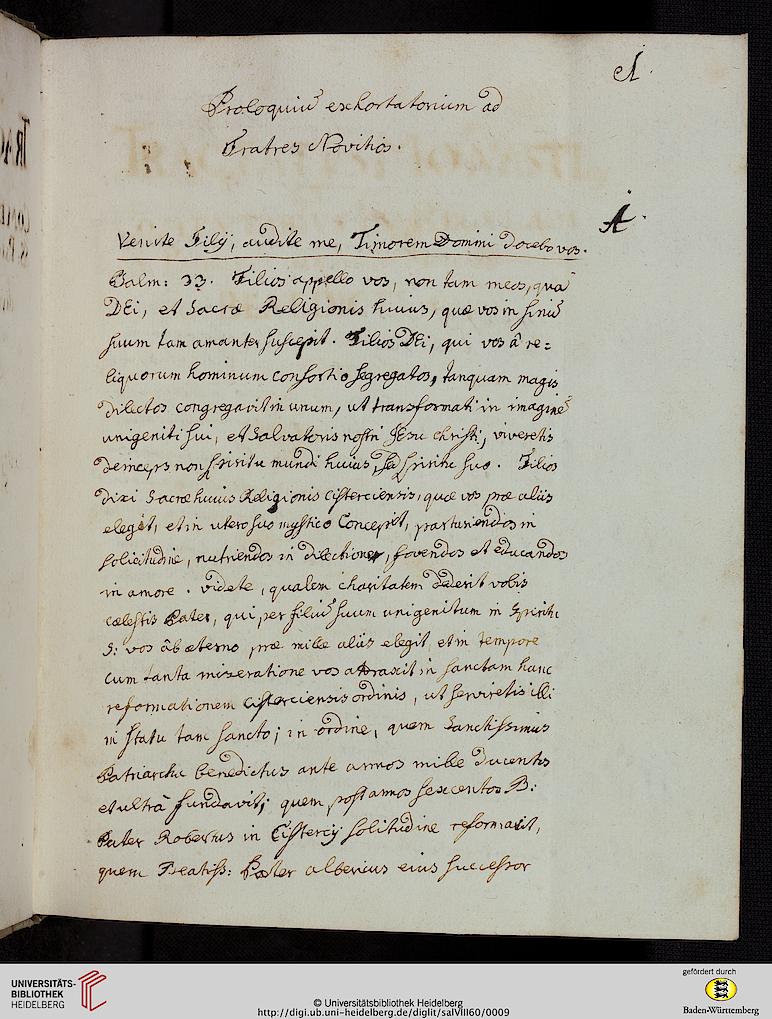 A.
Proloquiū exhortatorium ad
Fratres Novitios.
A.
Venite Filij, audite me, Timorem Domini docebo vos.
Psalm: 33. Filios appello vos, non tam meos, quā
DEi, et Sacræ Religionis huius, quæ vos in sinū
suum tam amanter suscepit. Filios DEi, qui vos â re=
liquorum hominum consortio segregatos, tanquam magis
dilectos congregavit in unum, ut transformati in imaginē
unigeniti sui, et Salvatoris nostri JEsu Christi, viveretis
deinceps non spiritu mundi huius, sed spiritu suo. Filios
dixi Sacræ huius Religionis Cisterciensis, quæ vos præ aliis
elegit, et in utero suo mystico Concepit, parturiendos in
solicitudine, nutriendos in dilectione, fovendos et educandos
in amore. videte, qualem charitatem dederit vobis
cælestis Pater, qui per filiū suum unigenitum in Spiritu
S: vos âb æterno præ mille aliis elegit, et in tempore
cum tanta miseratione vos attraxit in sanctam hanc
reformationem Cisterciensis ordinis, ut serviretis illi
in statu tam sancto; in ordine, quem Sanctissimus
Patriarcha benedictus ante annos mille ducentos
et ultrâ fundavit; quem post annos sexcentos B:
Pater Robertus in Cistercij solitudine reformavit,
quem Beatiss: Pater albericus eius successor
UNIVERSITÄTS-
BIBLIOTHEK
HEIDELBERG
© Universitätsbibliothek Heidelberg
http://digi.ub.uni-heidelberg.de/diglit/salVIII60/0009
gefördert durch
Baden-Württemberg